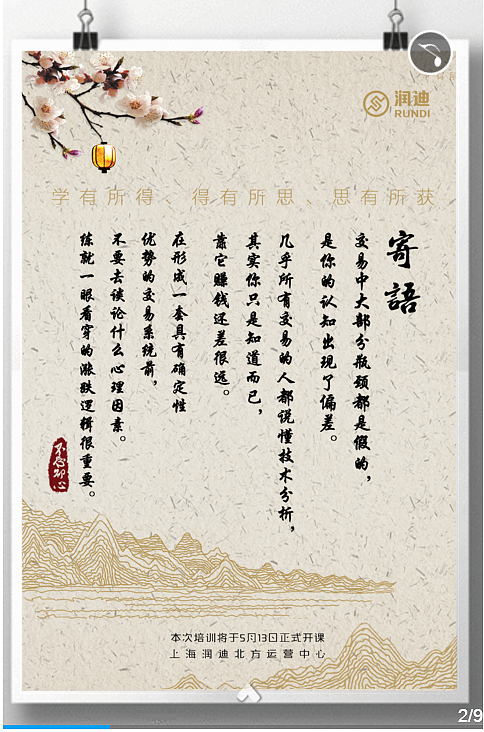 润迪
RUNDI
学有所得、得有所思、思有所获
寄語
交易中大部分瓶颈都是假的，
是你的认知出现了偏差。
几乎所有交易的人都说懂技术分析，
其实你只是知道而已，
靠它赚钱还差很远。
在形成一套具有确定性
优势的交易系统前，
不要去谈论什么心理因素。
练就一眼看穿的涨跌逻辑很重要。
不忘初心
本次培训将于5月13日正式开课
上海润迪北方运营中心
2/9